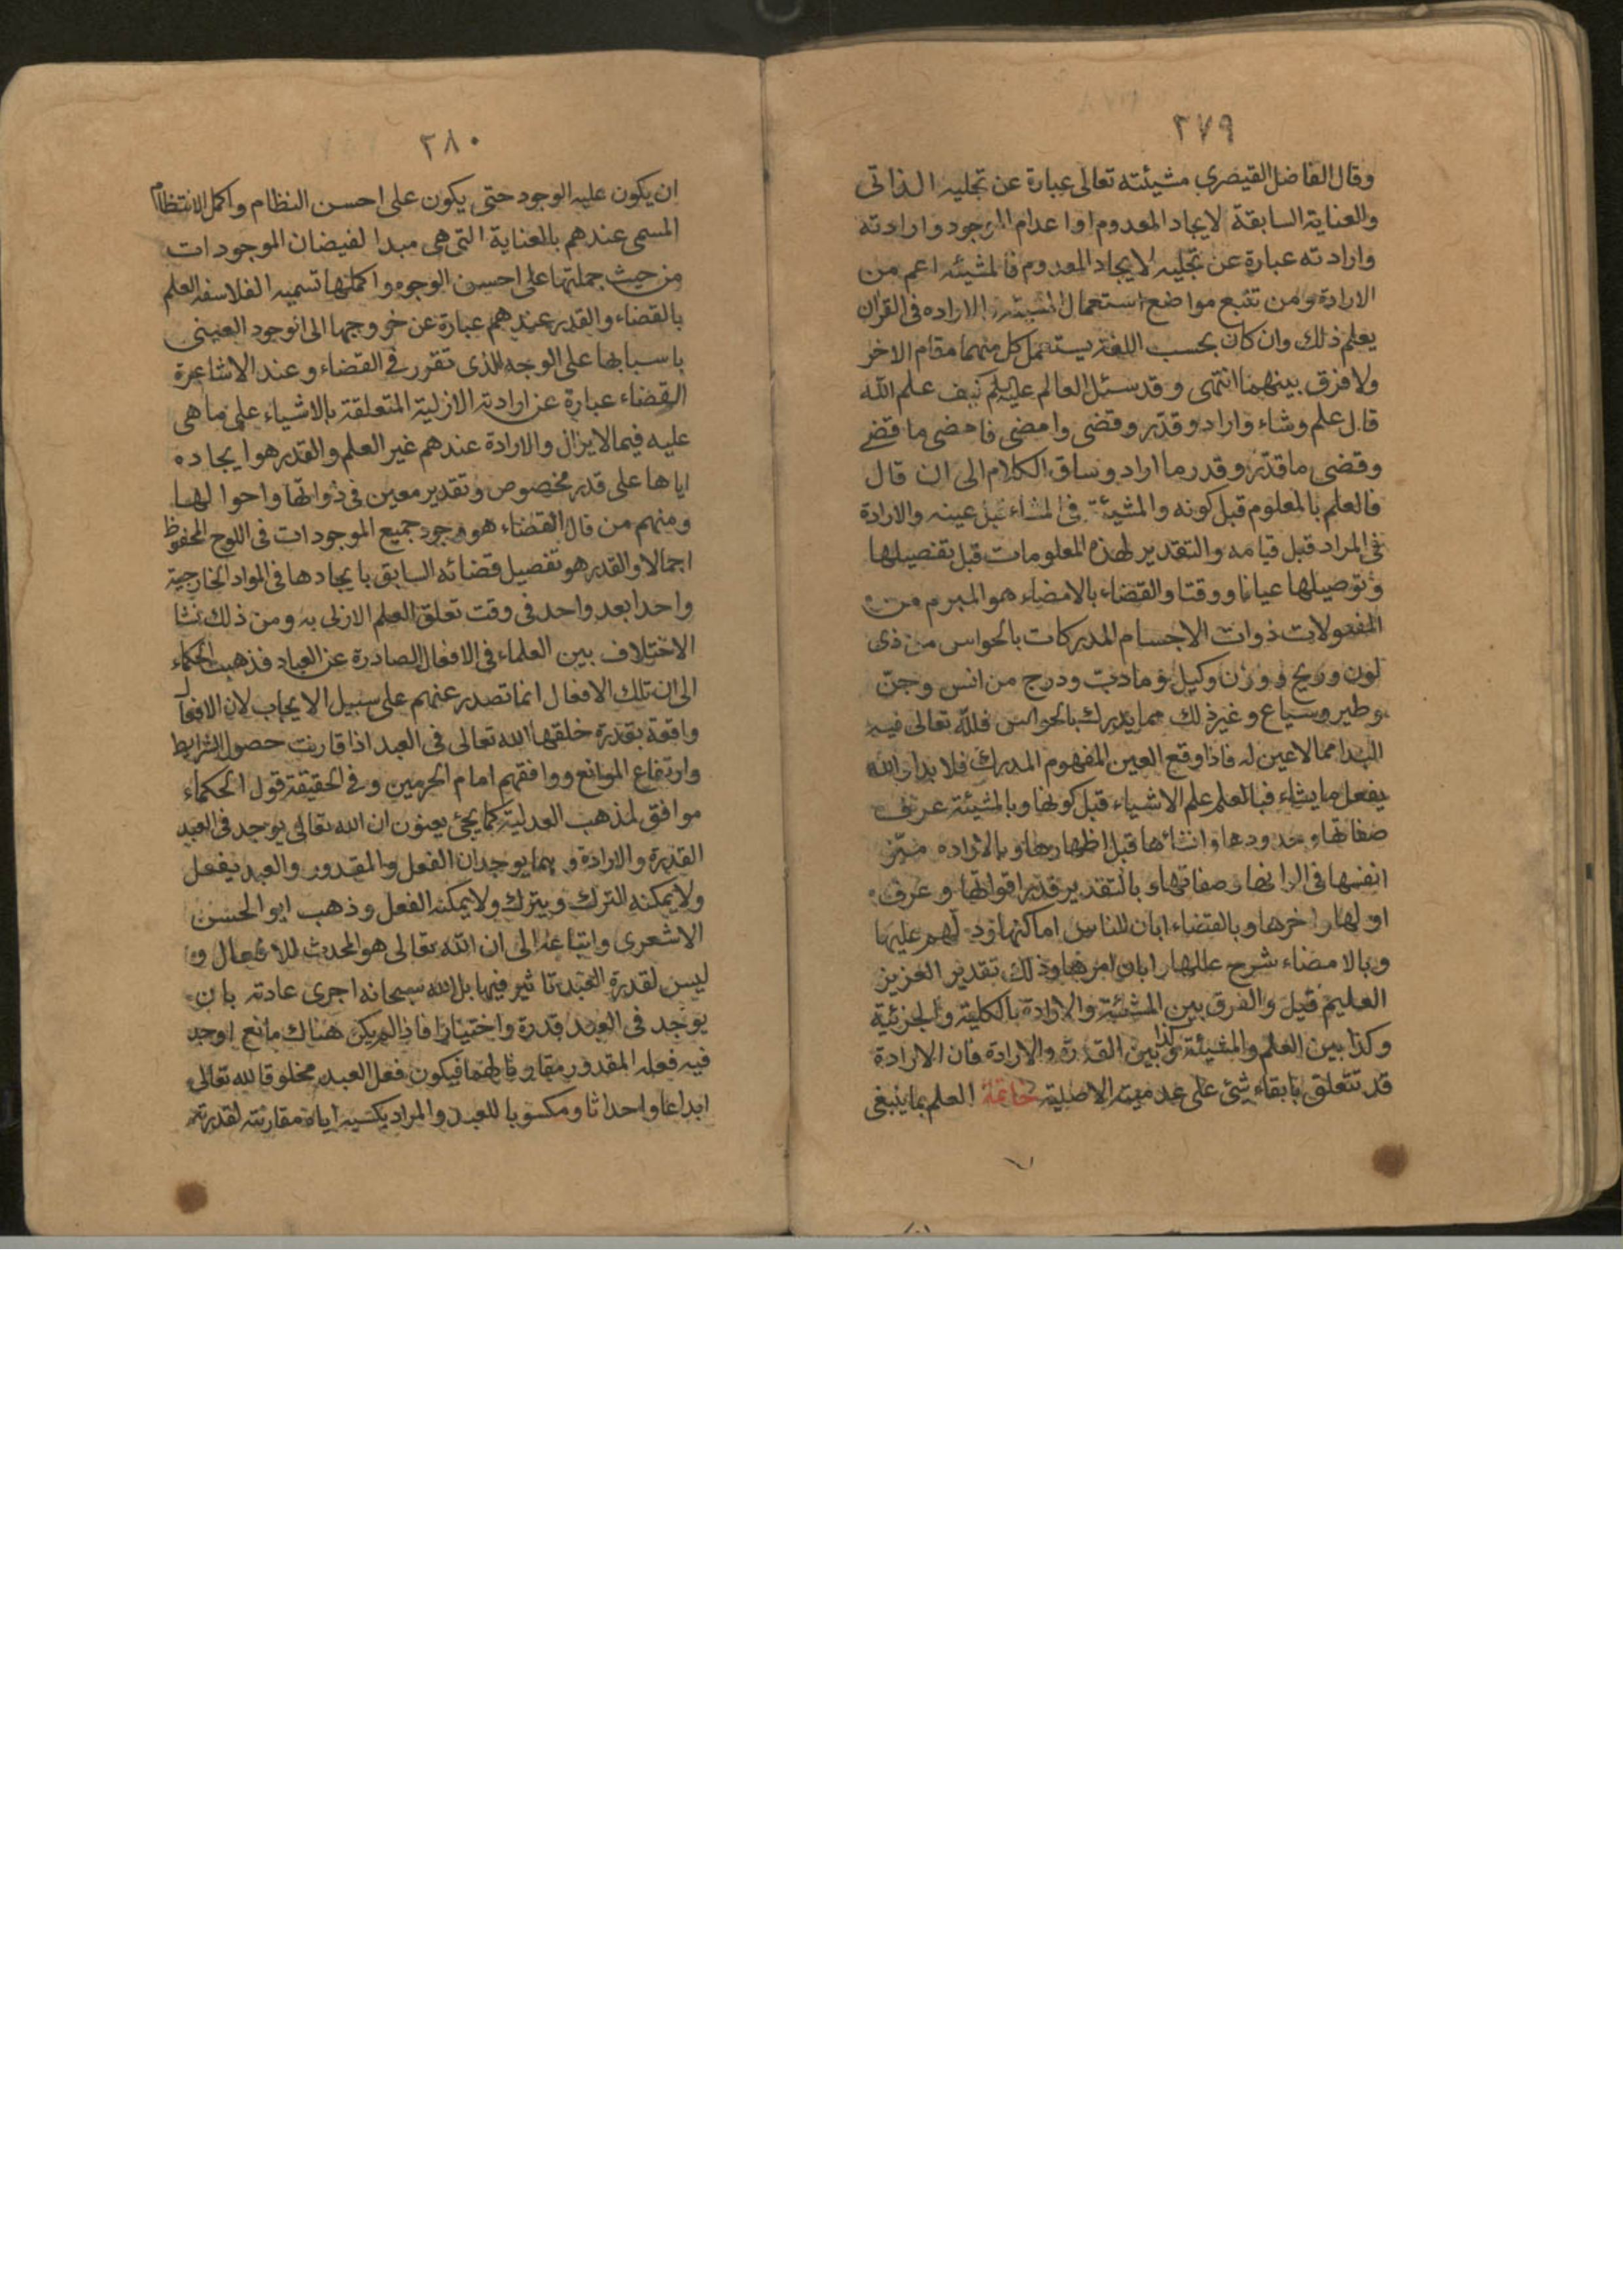 ٣٧٩
وقال الفاضل القيصري مشيئته تعالى عبارة عن تجليه الذاتى
والعناية السابقة لايجاد المعدوم او اعدام الموجود وارادته
وارادته عبارة عن تجليه لايجاد المعدوم فالمشيئه اعم من
الارادة ومن تتبع مواضع استعمال المشيئة والاراده فى القران
يعلم ذلك وان كان بحسب اللغة يستعمل كل منهما مقام الاخر
ولا فرق بينهما انتهى وقد سئل العالم عليه كيف علم الله
قال علم وشاء واراد وقدر وقضى وامضى فامضى ما قضى
وقضى ما قدر وقدر ما اراد وساق الكلام الى ان قال
فالعلم بالمعلوم قبل كونه والمشيئة فى المشاء قبل عينه والارادة
فى المراد قبل قيامه والتقدير لهذه المعلومات قبل تفصيلها
وتوصيلها عيانا ووقتا والقضاء بالامضاء هو المبرم من
المفعولات ذوات الاجسام المدركات بالحواس من ذى
لون وريح ووزن وكيل وما دب ودرج من انس وجن
وطير وسباع وغير ذلك مما يدرك بالحواس فلله تعالى فيه
البدا مما لا عين له فاذا وقع العين المفهوم المدرك فلا بدا والله
يفعل ما يشاء فبالعلم علم الاشياء قبل كونها وبالمشيئة عرف
صفاتها وحدودها وانشائها قبل اظهارها وبالاراده ميز
انفسها فى الوانها وصفاتها وبالتقدير قدر اقواتها وعرف
اولها واخرها وبالقضاء ابان للناس اماكنها ودلهم عليها
وبالامضاء شرح عللها وابان امرها وذلك تقدير العزيز
العليم قيل والفرق بين المشيئة والارادة بالكلية والجزئية
وكذا بين العلم والمشيئة وكذا بين القدرة والارادة فان الارادة
قد تتعلق بابقاء شئ على عدميته الاصلية خاتمة العلم بما ينبغى
٣٨٠
ان يكون عليه الوجود حتى يكون على احسن النظام واكمل الانتظام
المسمى عندهم بالعناية التى هى مبدا لفيضان الموجودات
من حيث جملتها على احسن الوجوه واكملها تسميه الفلاسفه العلم
بالقضاء والقدر عندهم عبارة عن خروجها الى الوجود العينى
باسبابها على الوجه الذى تقرر فى القضاء وعند الاشاعرة
القضاء عبارة عن ارادته الازلية المتعلقة بالاشياء على ما هى
عليه فيما لا يزال والارادة عندهم غير العلم والقدر هو ايجاده
اياها على قدر مخصوص وتقدير معين فى ذواتها واحوالها
ومنهم من قال القضاء هو وجود جميع الموجودات فى اللوح المحفوظ
اجمالا والقدر هو تفصيل قضائه السابق بايجادها فى المواد الخارجية
واحدا بعد واحد فى وقت تعلق العلم الازلى به ومن ذلك نشا
الاختلاف بين العلماء فى الافعال الصادرة عن العباد فذهبت الحكماء
الى ان تلك الافعال انما تصدر عنهم على سبيل الايجاب لان الافعال
واقعة بقدرة خلقها الله تعالى فى العبد اذا قارنت حصول الشرايط
وارتفاع الموانع ووافقهم امام الحرمين وفى الحقيقة قول الحكماء
موافق لمذهب العدلية كما يجئ يعنون ان الله تعالى يوجد فى العبد
القدرة والارادة وبهما يوجدان الفعل والمقدور والعبد يفعل
ولا يمكنه الترك ويترك ولا يمكنه الفعل وذهب ابو الحسن
الاشعرى واتباعه الى ان الله تعالى هو المحدث للافعال و
ليس لقدرة العبد تاثير فيها بل الله سبحانه اجرى عادته بان
يوجد فى العبد قدرة واختيارا فاذا لم يكن هناك مانع اوجد
فيه فعله المقدور مقارنا لهما فيكون فعل العبد مخلوقا لله تعالى
ابداعا واحداثا ومكسوبا للعبد والمراد بكسبه اياه مقارنته لقدرته